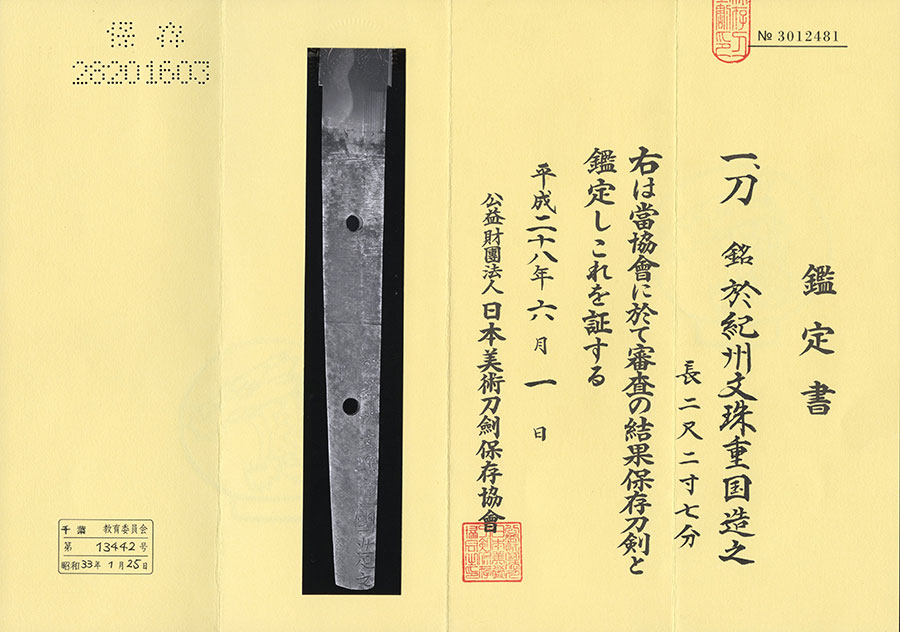 № 3012481
鑑定書
一、刀 銘 於紀州文珠重国造之
長二尺二寸七分
右は當協會に於て審査の結果保存刀剣と
鑑定しこれを証する
平成二十八年六月一日
公益財團法人 日本美術刀劍保存協會
保存
28201603
千葉 教育委員会
第 13442 号
昭和 33年 1月 25日